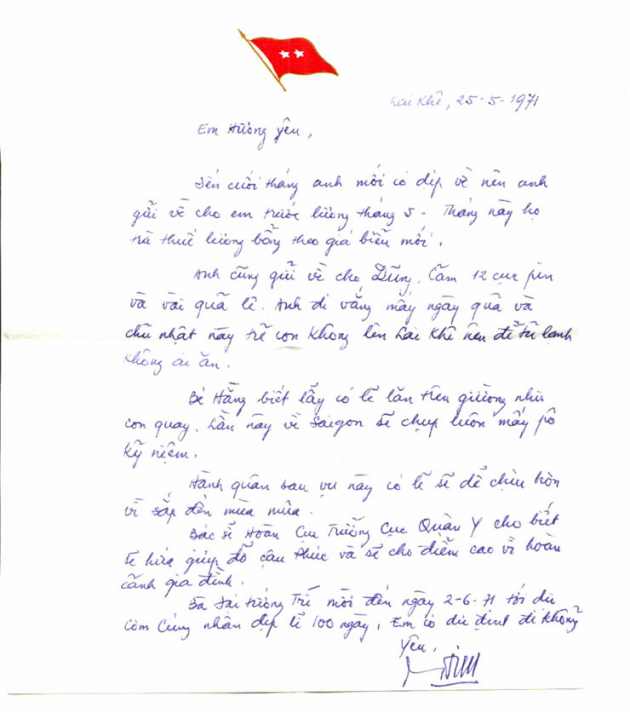 Lai Khê, 25-5-1971
Em Hương yêu,
Đến cuối tháng anh mới có dịp về nên anh
gửi về cho em trước lương tháng 5 - Tháng này họ
trả thuế lương bổng theo giá biểu mới.
Anh cũng gửi về cho Dũng, Cầm 12 cục pin
và vài quả lê. Anh đi vắng mấy ngày quà và
chủ nhật này trẻ con không lên Lai Khê nên để tủ lạnh
không ai ăn.
Bé Hằng biết lẫy có lẽ lăn trên giường như
con quay. Lần này về Saigon sẽ chụp luôn mấy pô
kỷ niệm.
Hành quân sau vụ này có lẽ sẽ dễ chịu hơn
vì sắp đến mùa mưa.
Bác sĩ Hoàn Cục Trưởng Cục Quân Y cho biết
là hứa giúp đỡ cậu Phúc và sẽ cho điểm cao vì hoàn
cảnh gia đình.
Bà Đại tướng Trí mời đến ngày 2-6-71 tới dự
cơm Cúng nhân dịp lễ 100 ngày, Em có dự định đi không
Yêu,